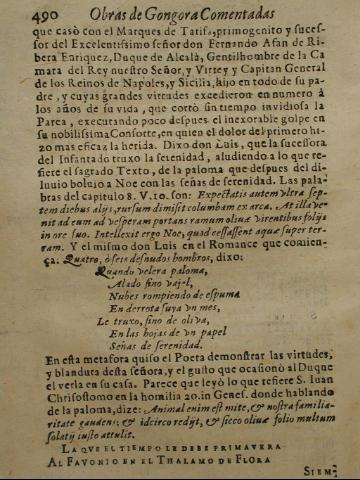 490 Obras de Gongora Comentadas
que casò con el Marques de Tarifa, primogenito y suces-
sor del Excelentissimo señor don Fernando Afan de Ri-
bera Enriquez, Duque de Alcalà, Gentilhombre de la Ca
mara del Rey nuestro Señor, y Virrey y Capitan General
de los Reinos de Napoles, y Sicilia, hijo en todo de su pa-
dre, y cuyas grandes virtudes excedieron en numero à
los años de su vida, que cortò sin tiempo invidiosa la
Parca, executando poco despues el inexorable golpe en
su nobilissima Consorte, en quien el dolor del primero hi-
zo mas eficaz la herida. Dixo don Luis, que la sucessora
del Infantado truxo la serenidad, aludiendo a lo que re-
fiere el sagrado Texto, de la paloma que despues del di-
luuio boluio a Noe con las señas de serenidad. Las pala-
bras del capitulo 8. V. 10. son: Expectatis autem vltra sep-
tem diebus alijs, rursum dimisit columbam ex arca. At illa ve-
nit ad eum ad vesperam portans ramum oliuæ virentibus folijs
in ore suo. Intellexit ergo Noe, quod cessassent aquæ super ter-
ram. Y el mismo don Luis en el Romance que comien-
ça: Quatro, ò seis desnudos hombros, dixo:
Quando velera paloma,
Alado sino vajel,
Nubes rompiendo de espuma
En derrota suya vn mes,
Le truxo, sino de oliva,
En las hojas de vn papel
Señas de serenidad.
En esta metafora quiso el Poeta demonstrar las virtudes,
y blandura desta señora, y el gusto que ocasionò al Duque
el verla en su casa. Parece que leyò lo que refiere S. Iuan
Chrisostomo en la homilia 20. in Genes. donde hablando
de la paloma, dize: Animal enim est mite, & nostra familia-
ritate gaudens; & idcirco redijt, & sicco oliuæ folio multum
solatij iusto attulit.
LA QVE EL TIEMPO LE DEBE PRIMAVERA
AL FAVONIO EN EL THALAMO DE FLORA
SIEM-